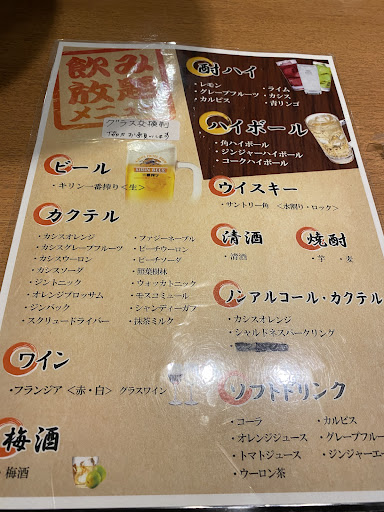 飲み
放題
メニュー
グラス交換制
酎ハイ
・レモン
・グレープフルーツ
・カルピス
・ライム
・カシス
・青リンゴ
ハイボール
・角ハイボール
・ジンジャーハイボール
・コークハイボール
ビール
・キリン一番搾り<生>
カクテル
・カシスオレンジ
・カシスグレープフルーツ
・カシスウーロン
・カシスソーダ
・ジントニック
・オレンジブロッサム
・ジンバック
・スクリュードライバー
・ファジーネーブル
・ピーチウーロン
・ピーチソーダ
・照葉樹林
・ウォッカトニック
・モスコミュール
・シャンディーガフ
・抹茶ミルク
ウイスキー
・サントリー角 <水割り・ロック>
清酒
・清酒
焼酎
・芋 ・麦
ノンアルコール・カクテル
・カシスオレンジ
・シャルトネスパークリング
ワイン
・フランジア<赤・白> グラスワイン
ソフトドリンク
・コーラ
・オレンジジュース
・トマトジュース
・ウーロン茶
・カルピス
・グレープフルー
・ジンジャーエー
梅酒
・梅酒